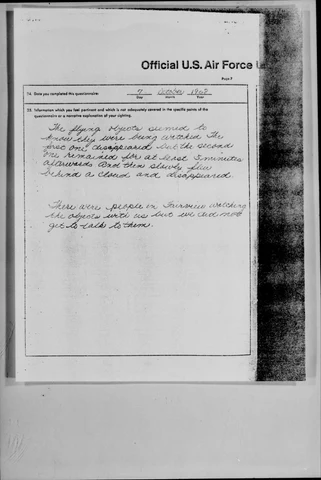 Official U.S. Air Force
Page 7
24. Date you completed this questionnaire:
7 October 1968
Day Month Year
25. Information which you feel pertinent and which is not adequately covered in the specific points of the
questionnaire or a narrative explanation of your sighting.
The flying objects seemed to
know they were being watched. The
first one disappeared but the second
one remained for at least 3 minutes
afterwards. And then slowly flew
behind a cloud and disappeared.
There were people in Fairview watching
the objects with us but we did not
get to talk to them.